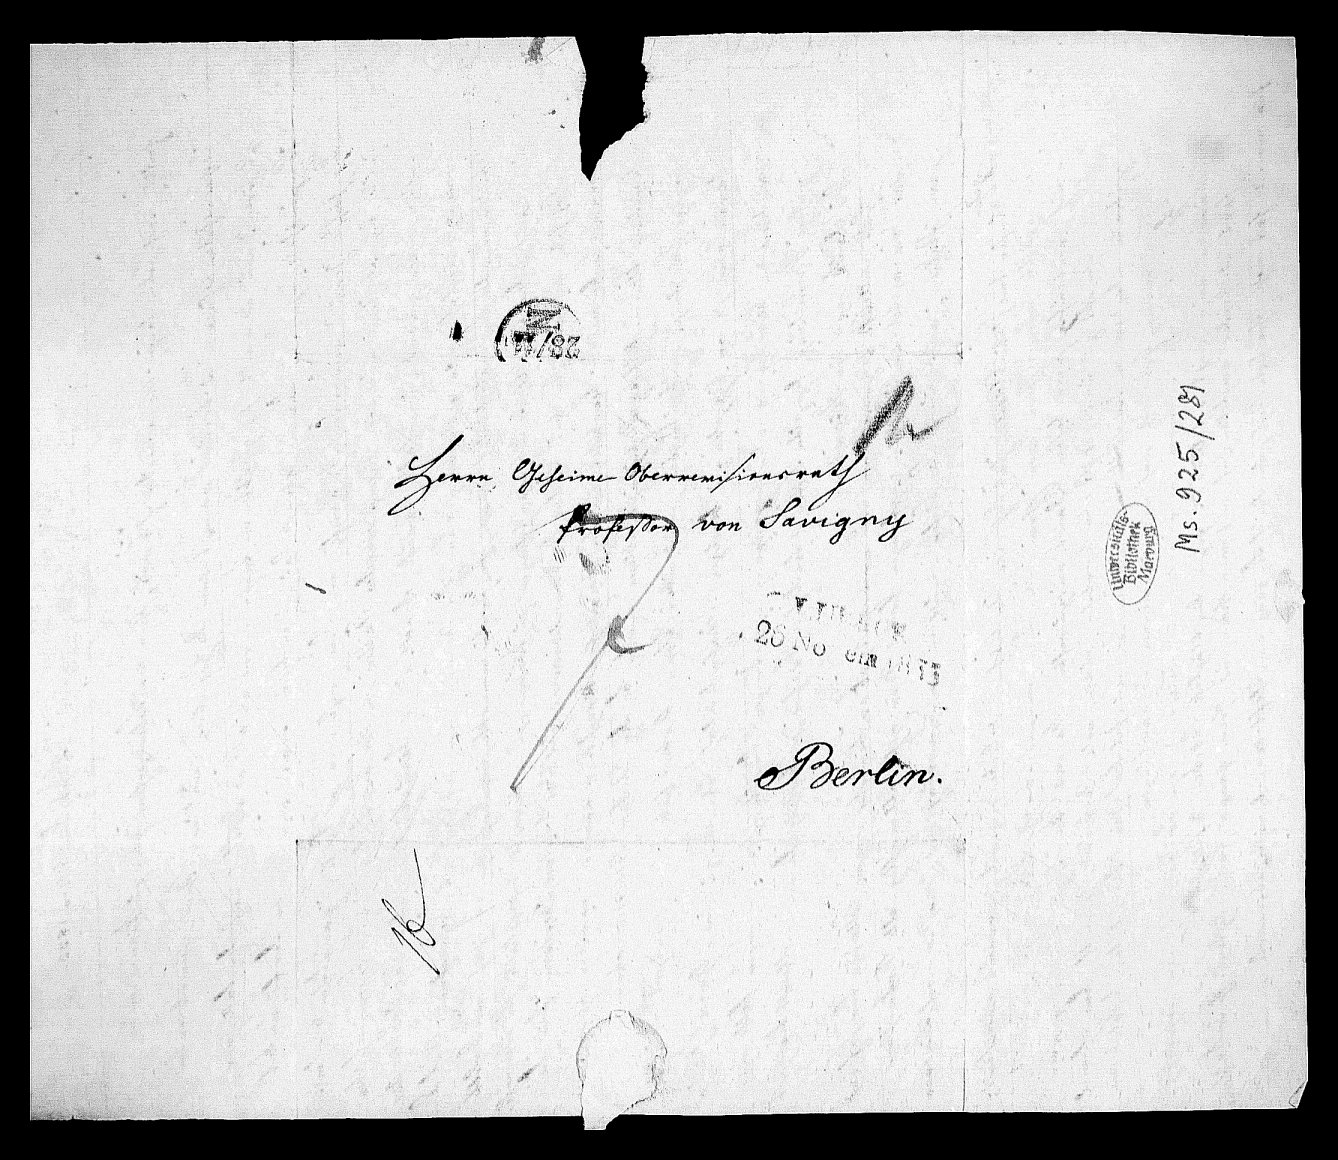 N
28/11
Herrn Geheime Oberrevisionsrath
Professor von Savigny
Berlin.
Universitäts-
Bibliothek
Marburg
Ms. 925/281